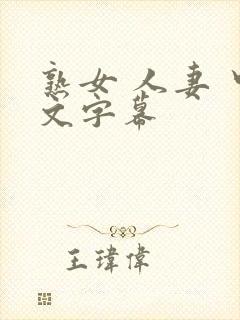 熟女 人妻 中
文字幕
王瑋偉